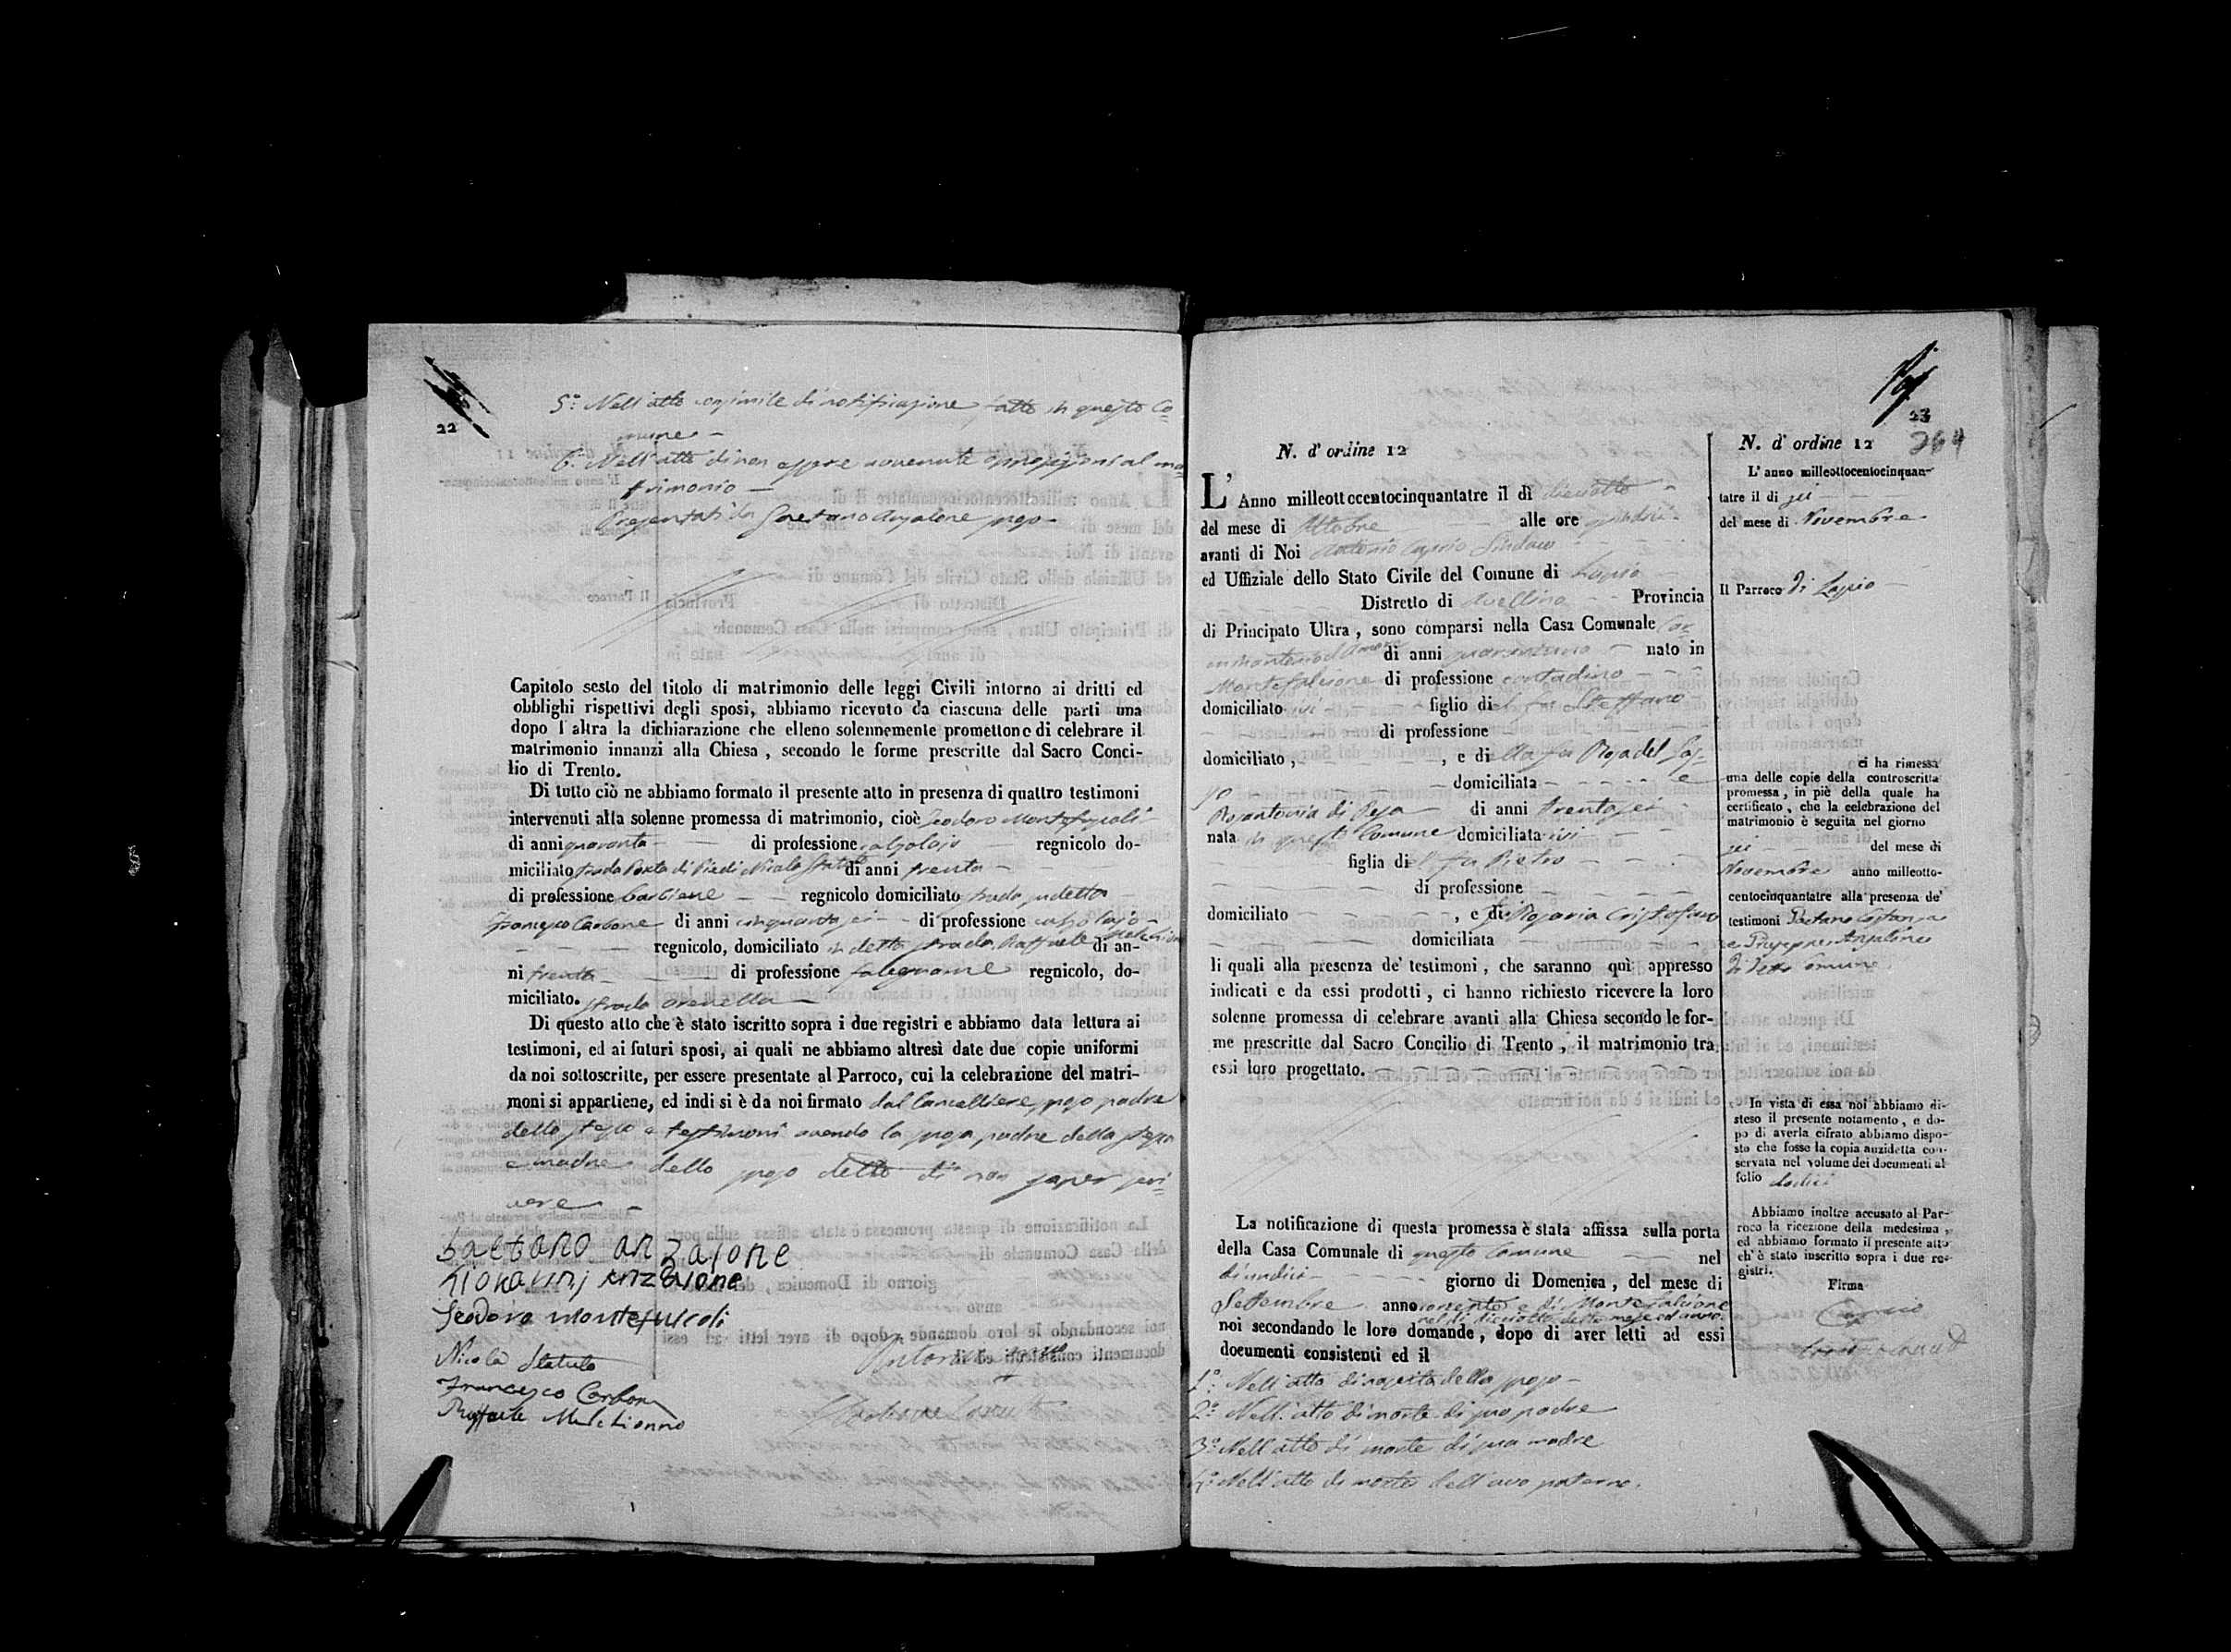 22
5.° Nell'atto consimile di notificazione fatto in questo Co=
mune –
6.° Nell'atto di non essere avvenute opposizioni al ma=
trimonio –
Presentati da Gaetano Anzalone sposo –
Capitolo sesto del titolo di matrimonio delle leggi Civili intorno ai dritti ed
obblighi rispettivi degli sposi, abbiamo ricevuto da ciascuna delle parti una
dopo l'altra la dichiarazione che elleno solennemente promettono di celebrare il
matrimonio innanzi alla Chiesa, secondo le forme prescritte dal Sacro Conci-
lio di Trento.
Di tutto ciò ne abbiamo formato il presente atto in presenza di quattro testimoni
intervenuti alla solenne promessa di matrimonio, cioè Teodoro Montefuscoli
di anni quaranta di professione calzolajo regnicolo do-
miciliato strada Porta di Piedi Nicola Statuto di anni trenta
di professione barbiere regnicolo domiciliato strada sudetta
Francesco Carbone di anni cinquantasei di professione calzolajo
regnicolo, domiciliato in detta strada, Raffaele Melchionno di an-
ni trenta di professione falegname regnicolo, do-
miciliato. strada Arenella
Di questo atto che è stato iscritto sopra i due registri e abbiamo data lettura ai
testimoni, ed ai futuri sposi, ai quali ne abbiamo altresì date due copie uniformi
da noi sottoscritte, per essere presentate al Parroco, cui la celebrazione del matri-
moni si appartiene, ed indi si è da noi firmato dal Cancelliere, sposo padre
dello stesso e testimoni avendo la sposa, padre della stessa
e madre dello sposo detto di non saper scri=
vere –
Gaetano anzalone
Giovanni anzalone
Teodoro montefuscoli
Nicola Statuto
Francesco Carbone
Raffaele Melchionno
23
264
N. d'ordine 12
L'Anno milleottocentocinquantatre il dì dieciotto
del mese di Ottobre alle ore quindici
avanti di Noi Antonio Caprio Sindaco
ed Uffiziale dello Stato Civile del Comune di Lapio
Distretto di Avellino Provincia
di Principato Ultra, sono comparsi nella Casa Comunale
di anni quarantuno nato in
Montefalcione di professione contadino
domiciliato ivi figlio del fu Steffano
di professione
domiciliato, , e della fu Rosa del
domiciliata e
Rosantonia di Resa di anni trentasei
nata in questo Comune domiciliata ivi
figlia del fu Pietro
di professione
domiciliato , e di fu Rosaria Cristofano
domiciliata
li quali alla presenza de' testimoni, che saranno quì appresso
indicati e da essi prodotti, ci hanno richiesto ricevere la loro
solenne promessa di celebrare avanti alla Chiesa secondo le for-
me prescritte dal Sacro Concilio di Trento, il matrimonio tra
essi loro progettato.
La notificazione di questa promessa è stata affissa sulla porta
della Casa Comunale di questo Comune nel
dì undici giorno di Domenica, del mese di
Settembre anno corrente e di Montefalcione
nel dì dieciotto detto mese ed anno
noi secondando le loro domande, dopo di aver letti ad essi
documenti consistenti ed il
1.° Nell'atto di nascita dello sposo –
2.° Nell'atto di morte di suo padre
3.° Nell'atto di morte di sua madre
4.° Nell'atto di morte dell'avo paterno.
N. d'ordine 12
L'anno milleottocentocinquan-
tatre il di sei
del mese di Novembre
Il Parroco di Lapio
ci ha rimessa
una delle copie della controscritta
promessa, in piè della quale ha
certificato, che la celebrazione del
matrimonio è seguita nel giorno
sei del mese di
Novembre anno milleotto-
centocinquantatre alla presenza de'
testimoni Gaetano Costanza
e Giuseppe Anzalone
di detto Comune
In vista di essa noi abbiamo di-
steso il presente notamento, e do-
po di averla cifrato abbiamo dispo-
sto che fosse la copia anzidetta con-
servata nel volume dei documenti al
folio dodici
Abbiamo inoltre accusato al Par-
roco la ricezione della medesima,
ed abbiamo formato il presente atto
ch'è stato inscritto sopra i due re-
gistri.
Firma
Caprio